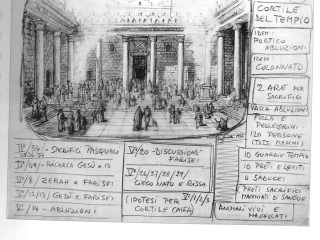 CORTILE
DEL TEMPIO
IDEM:
PORTICO
ABLUZIONI
IDEM:
COLONNATO
2 ARE PER
SACRIFICI
VASCA ABLUZIONI
FOLLA E
PELLEGRINI
120 PERSONE
(TUTTI MASCHI)
10 GUARDIE TEMPIO
10 PRETI E LEVITI
SADUCEI
PRETI SACRIFICI
MACCHIATI DI SANGUE
ANIMALI VIVI E
MACELLATI
SACRIFICI PASQUALI
RICERCA GESÙ
ZERAH E FARISEI
GESÙ E FARISEI
V/14 - ABLUZIONI
V/20 - DISCUSSIONE
FARISEI
CIECO NATO E RISSA
(IPOTESI PER
CORTILE CAIFA)